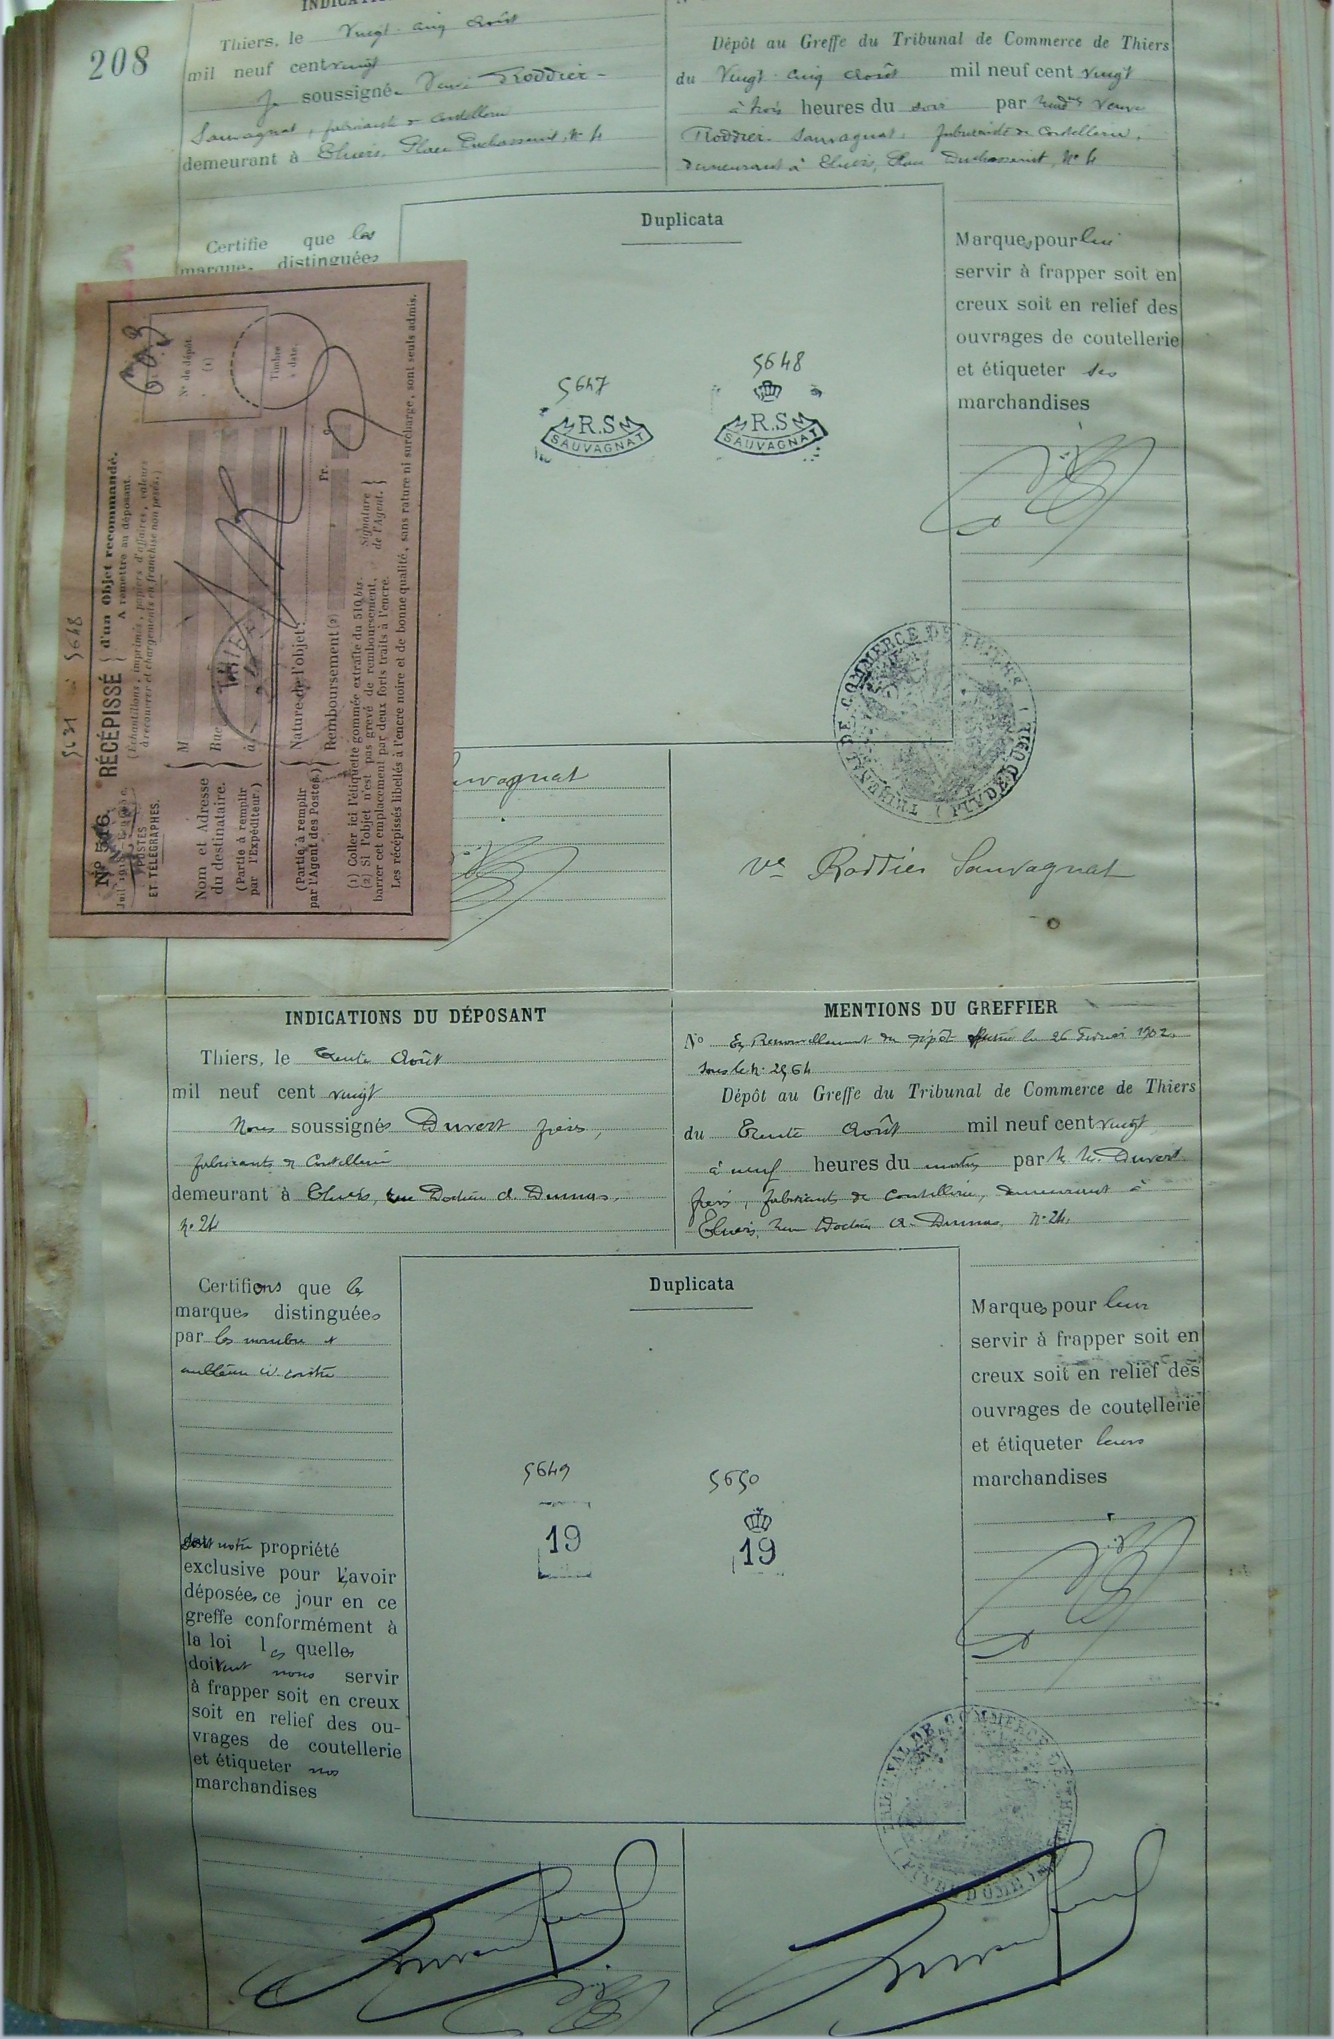 208
Thiers, le Vingt-cinq Août
mil neuf cent vingt
Je soussignée Veuve Roddier-
Sauvagnat, fabricante de coutellerie
demeurant à Thiers, Place Duchasseint, N° 4
Dépôt au Greffe du Tribunal de Commerce de Thiers
du Vingt-cinq Août mil neuf cent vingt
à trois heures du soir par Mad. Veuve
Roddier-Sauvagnat, fabricante de Coutellerie,
demeurant à Thiers, Place Duchasseint, N° 4
Certifie que les
marques distinguées
Duplicata
5647
R.S
SAUVAGNAT
5648
R.S
SAUVAGNAT
Marques pour lui
servir à frapper soit en
creux soit en relief des
ouvrages de coutellerie
et étiqueter ses
marchandises
TRIBUNAL DE COMMERCE DE THIERS
(PUY-DE-DÔME)
5631 à 5648
N° 516.
POSTES
ET TÉLÉGRAPHES.
RÉCÉPISSÉ d'un Objet recommandé.
A remettre au déposant.
(Échantillons, imprimés, papiers d'affaires, valeurs
à recouvrer et chargements en franchise non pesés.)
603
N° de dépôt.
(1)
Timbre
à date.
Nom et Adresse
du destinataire.
(Partie à remplir
par l'Expéditeur.)
M
Rue
à
(Partie à remplir
par l'Agent des Postes.)
Nature de l'objet
Remboursement (2) Fr. c.
Signature
de l'Agent.
(1) Coller ici l'étiquette gommée extraite du 510 bis.
(2) Si l'objet n'est pas grevé de remboursement,
barrer cet emplacement par deux forts traits à l'encre.
Les récépissés libellés à l'encre noire et de bonne qualité, sans rature ni surcharge, sont seuls admis.
uvagnat
Ve Roddier Sauvagnat
INDICATIONS DU DÉPOSANT
Thiers, le Trente Août
mil neuf cent vingt
Nous soussignés Duvert frères,
fabricants de Coutellerie
demeurant à Thiers, rue Docteur A. Dumas,
N° 24
MENTIONS DU GREFFIER
N° En Renouvellement du dépôt effectué le 26 Février 1902
sous le N° 2964
Dépôt au Greffe du Tribunal de Commerce de Thiers
du Trente Août mil neuf cent vingt
à neuf heures du matin par M. M. Duvert
frères, fabricants de coutellerie, demeurant à
Thiers, rue Docteur A. Dumas, N° 24,
Certifions que les
marques distinguées
par les nombre et
emblème ci-contre
sont notre propriété
exclusive pour l'avoir
déposées ce jour en ce
greffe conformément à
la loi lesquelles
doivent nous servir
à frapper soit en creux
soit en relief des ou-
vrages de coutellerie
et étiqueter nos
marchandises
Duplicata
5649
19
5650
19
Marques pour leur
servir à frapper soit en
creux soit en relief des
ouvrages de coutellerie
et étiqueter leurs
marchandises
TRIBUNAL DE COMMERCE DE THIERS
(PUY-DE-DÔME)